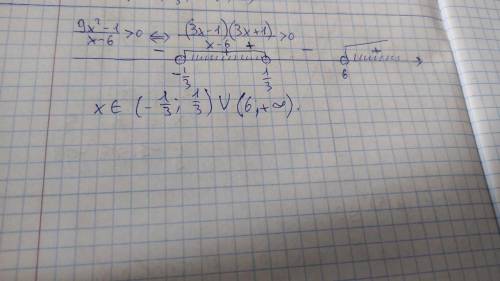 (9x²-1)/(x-6) >0 ⇔ ((3x-1)(3x+1))/(x-6) >0
- + + - +
-1/3 1/3 6
x∈ (-1/3; 1/3) ∨ (6,+∞).